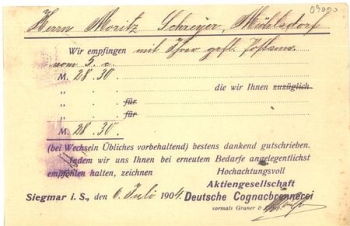 Herrn Moritz Schreyer, Mülsdorf
Wir empfingen mit Ihrer gefl.
vom 5. c.
M. 28.30.
" die wir Ihnen zuzüglich
" für
" für
M. 28.30.
(bei Wechseln Übliches vorbehaltend) bestens dankend gutschrieben.
Indem wir uns Ihnen bei erneutem Bedarfe angelegentlichst
empfohlen halten, zeichnen Hochachtungsvoll
Aktiengesellschaft
Siegmar i. S., den 6. Juli 1904. Deutsche Cognacbrennerei
vormals Gruner &